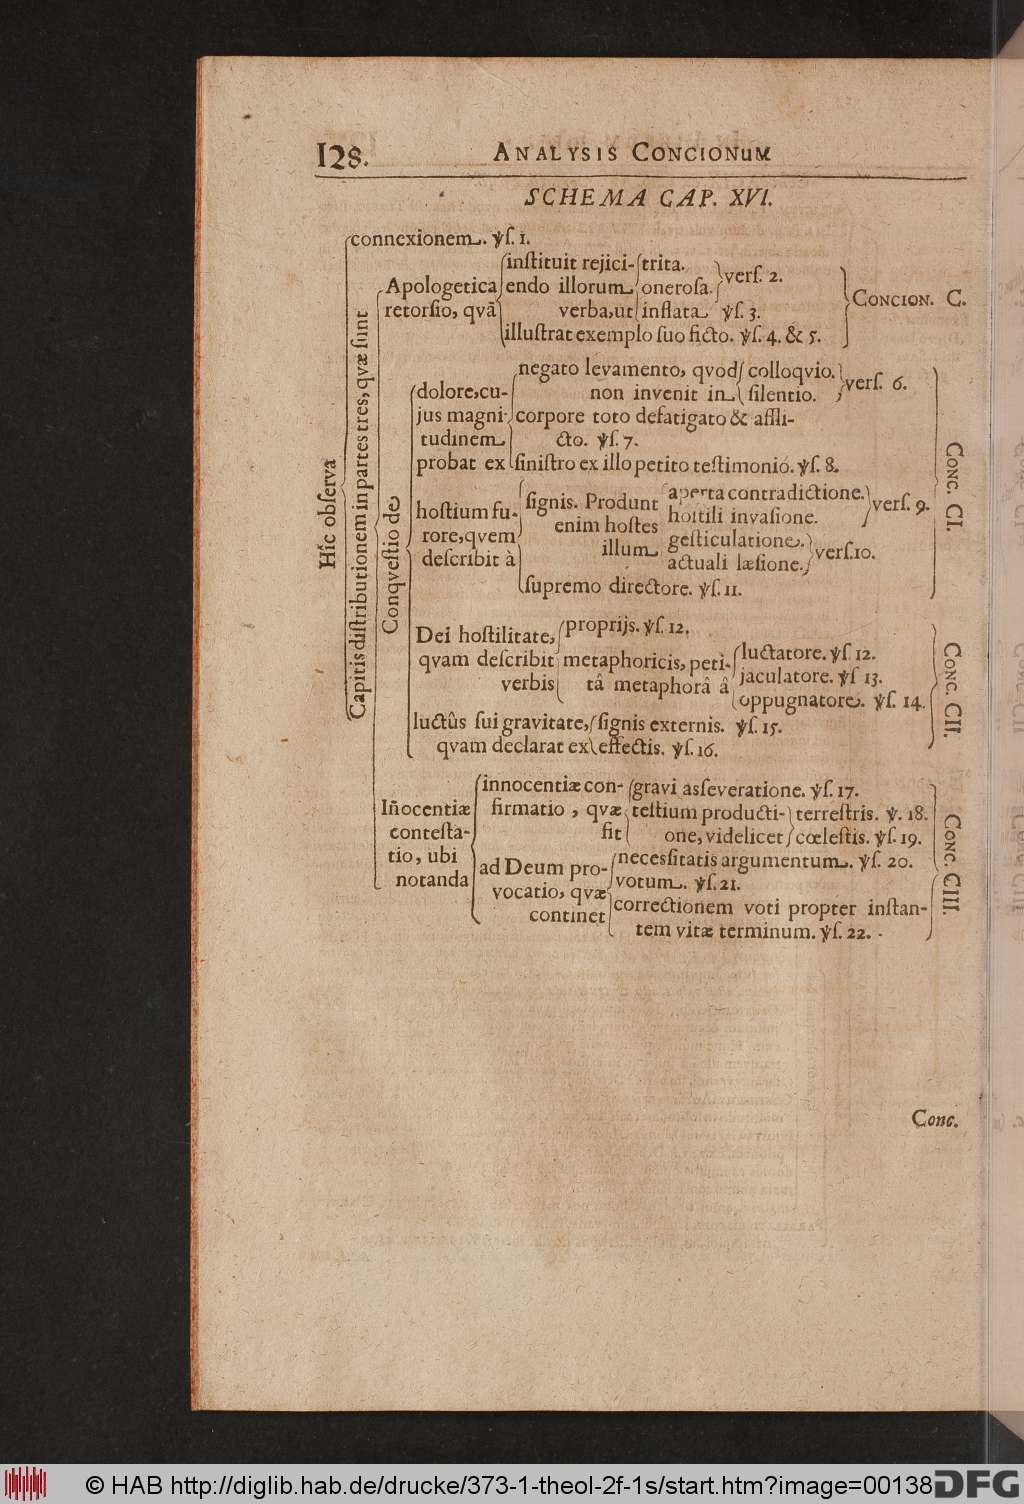 128.
ANALYSIS CONCIONuM
SCHEMA CAP. XVI.
Hîc obſerva
connexionem. ỳſ. 1.
Capitis diſtributionem in partes tres, qvæ ſunt
Apologetica
retorſio, qvâ
inſtituit rejici-
endo illorum
verba, ut
trita.
oneroſa.
verſ. 2.
inflata ỳſ. 3.
illuſtrat exemplo ſuo ficto. ỳſ. 4. & 5.
CONCION. C.
Conqveſtio de
dolore, cu-
jus magni-
tudinem
probat ex
negato levamento, qvod
non invenit in
colloqvio.
ſilentio.
verſ. 6.
corpore toto defatigato & affli-
cto. ỳſ. 7.
ſiniſtro ex illo petito teſtimonió. ỳſ. 8.
hoſtium fu-
rore, qvem
deſcribit à
ſignis. Produnt
enim hoſtes
illum
aperta contradictione.
hoſtili invaſione.
verſ. 9.
geſticulatione.
actuali læſione.
verſ. 10.
ſupremo directore. ỳſ. 11.
CONC. CI.
Dei hoſtilitate,
qvam deſcribit
verbis
proprijs. ỳſ. 12.
metaphoricis, peti-
tâ metaphorâ â
luctatore. ỳſ 12.
jaculatore. ỳſ 13.
oppugnatore. ỳſ. 14.
luctûs ſui gravitate,
qvam declarat ex
ſignis externis. ỳſ. 15.
effectis. ỳſ. 16.
CONC. CII.
Iñocentiæ
conteſta-
tio, ubi
notanda
innocentiæ con-
firmatio, qvæ
fit
gravi aſſeveratione. ỳſ. 17.
teſtium producti-
one, videlicet
terreſtris. ỳ. 18.
cœleſtis. ỳſ. 19.
ad Deum pro-
vocatio, qvæ
continet
neceſſitatis argumentum. ỳſ. 20.
votum. ỳſ. 21.
correctionem voti propter inſtan-
tem vitæ terminum. ỳſ. 22.
CONC. CIII.
Conc.
© HAB http://diglib.hab.de/drucke/373-1-theol-2f-1s/start.htm?image=00138
DFG